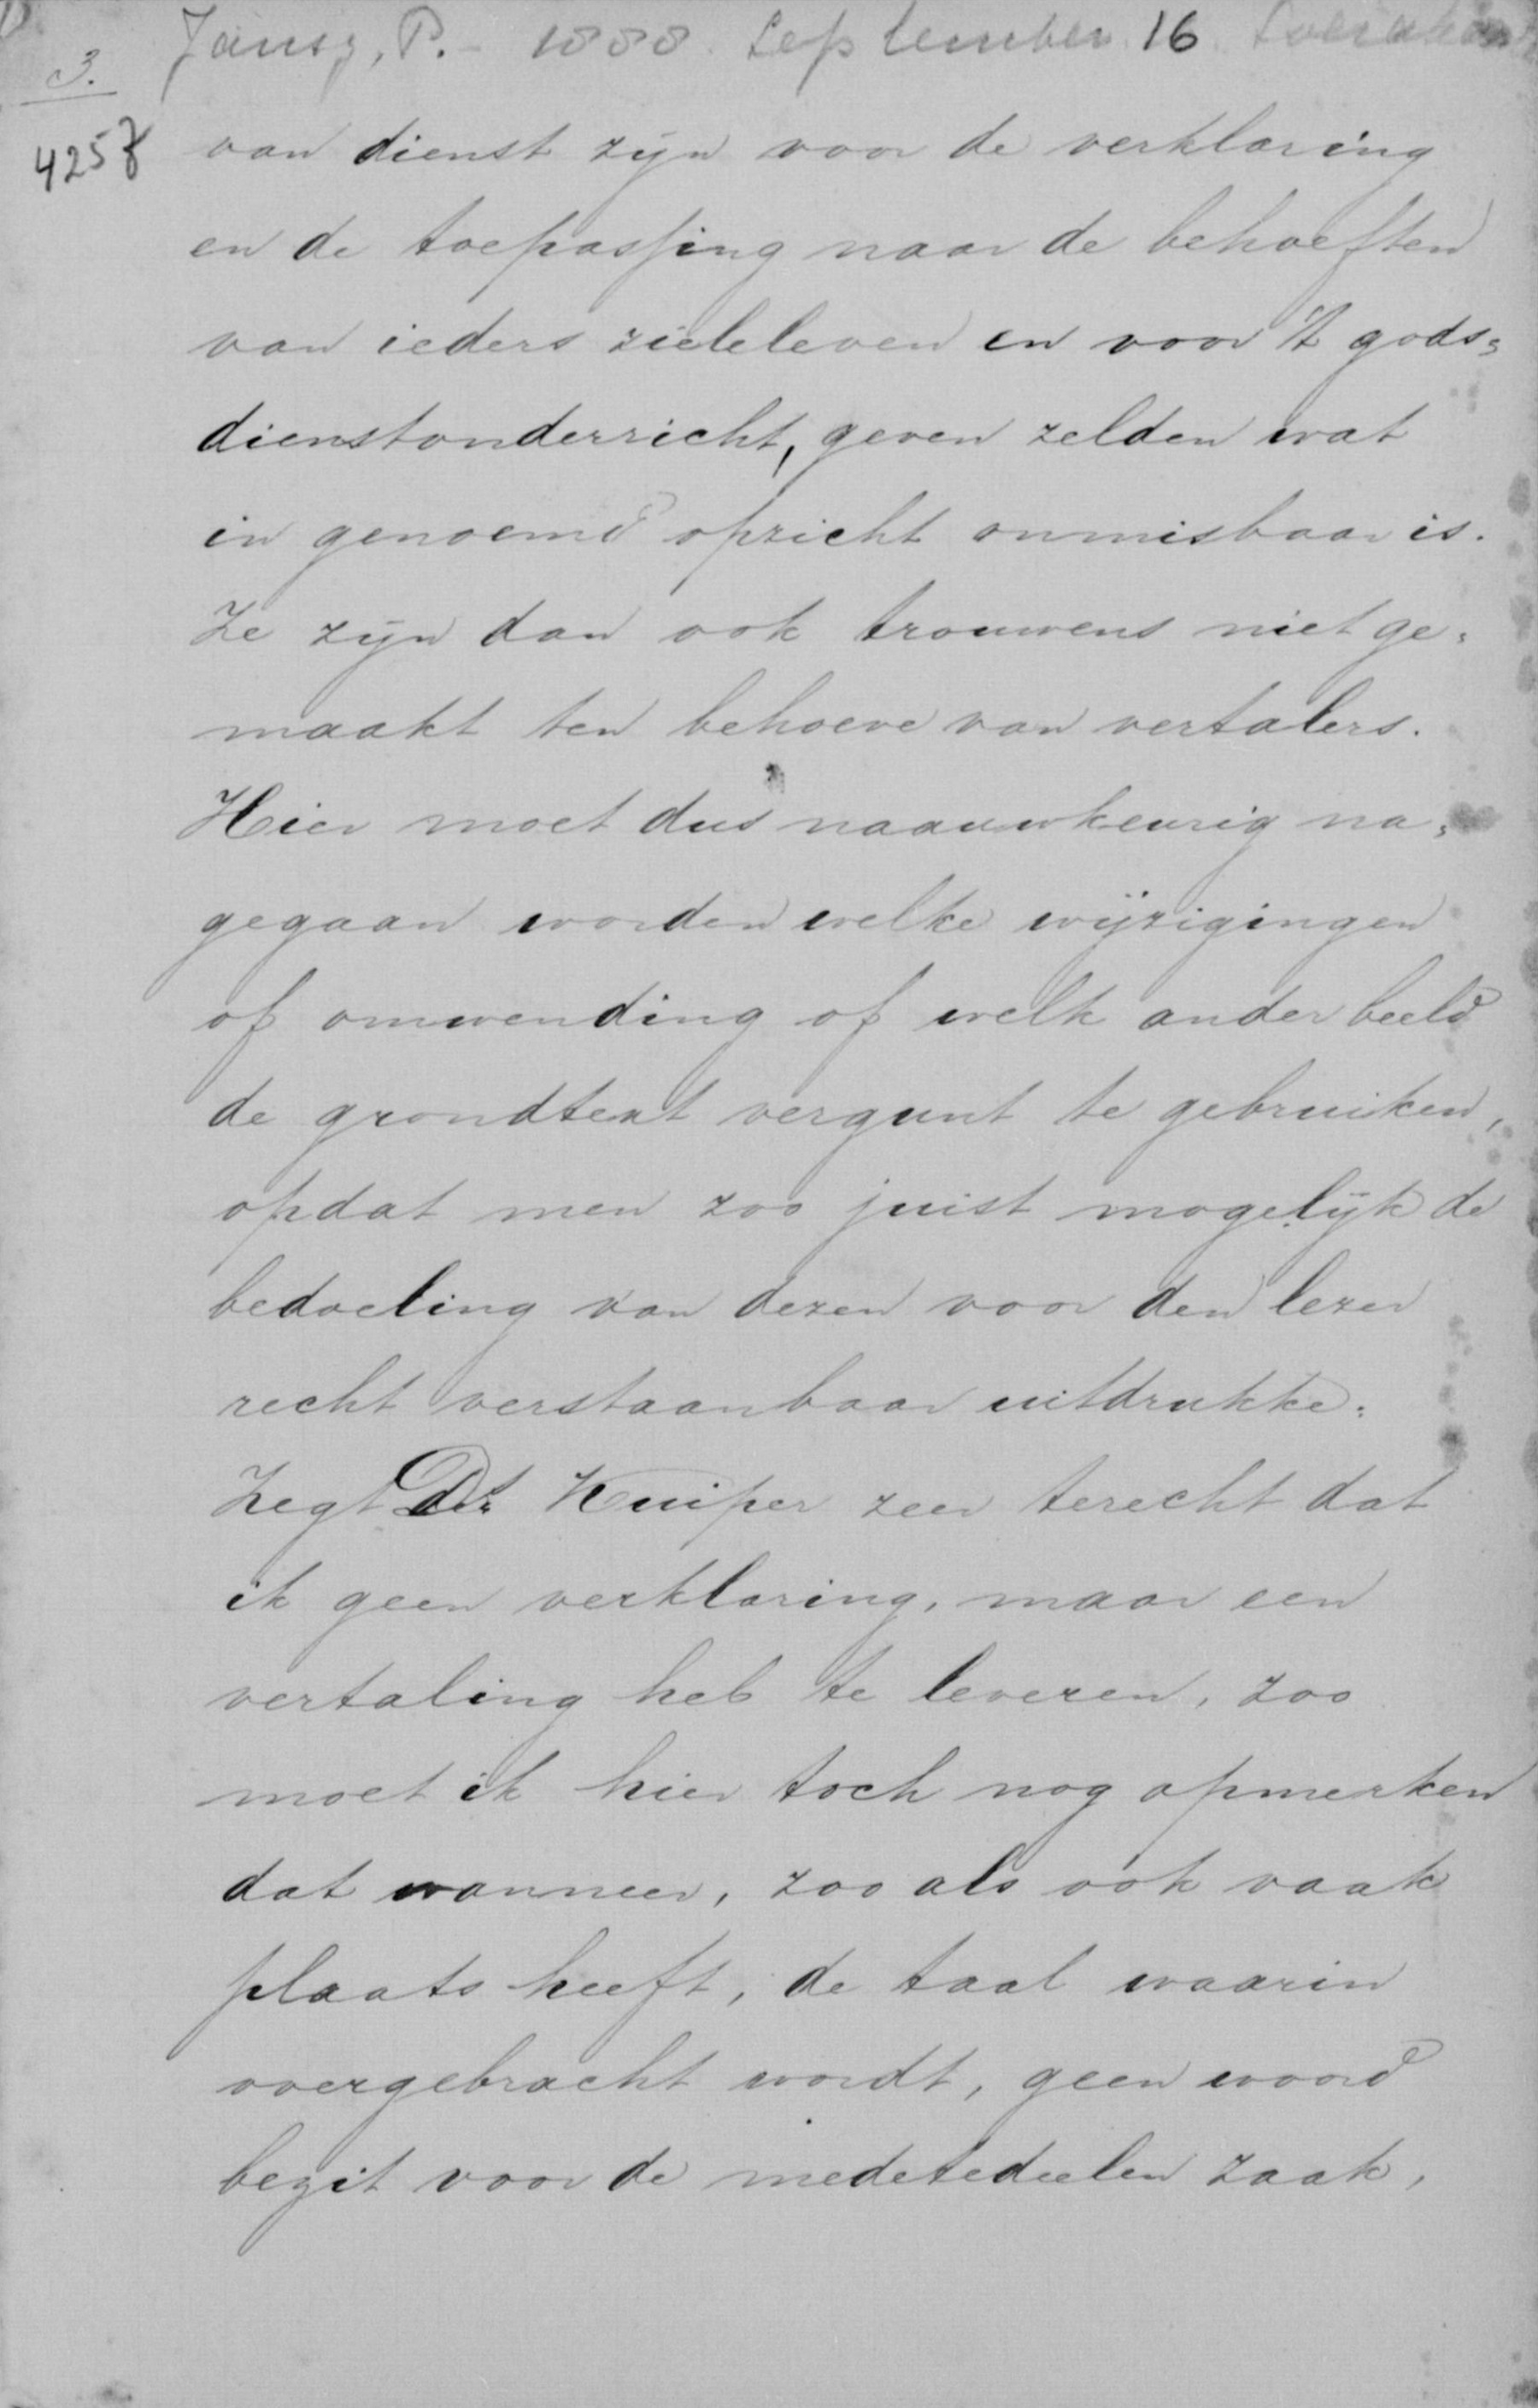 Jansz, P. - 1888 September 16
3.
4257
van dienst zijn voor de verklaring
en de toepassing naar de behoeften
van ieders zieleleven en voor 't gods=
dienstonderricht, geven zelden wat
in genoemd opzicht onmisbaar is.
Ze zijn dan ook trouwens niet ge=
maakt ten behoeve van vertalers.
Hier moet dus naauwkeurig na=
gegaan worden welke wijzigingen
of omwending of welk ander beeld
de grondtext vergunt te gebruiken,
opdat men zoo juist mogelijk de
bedoeling van dezen voor den lezer
recht verstaanbaar uitdrukke.
Zegt Dr Kuiper zeer terecht dat
ik geen verklaring, maar een
vertaling heb te leveren, zoo
moet ik hier toch nog opmerken
dat wanneer, zoo als ook vaak
plaats heeft, de taal waarin
overgebracht wordt, geen woord
bezit voor de medetedeelen zaak,